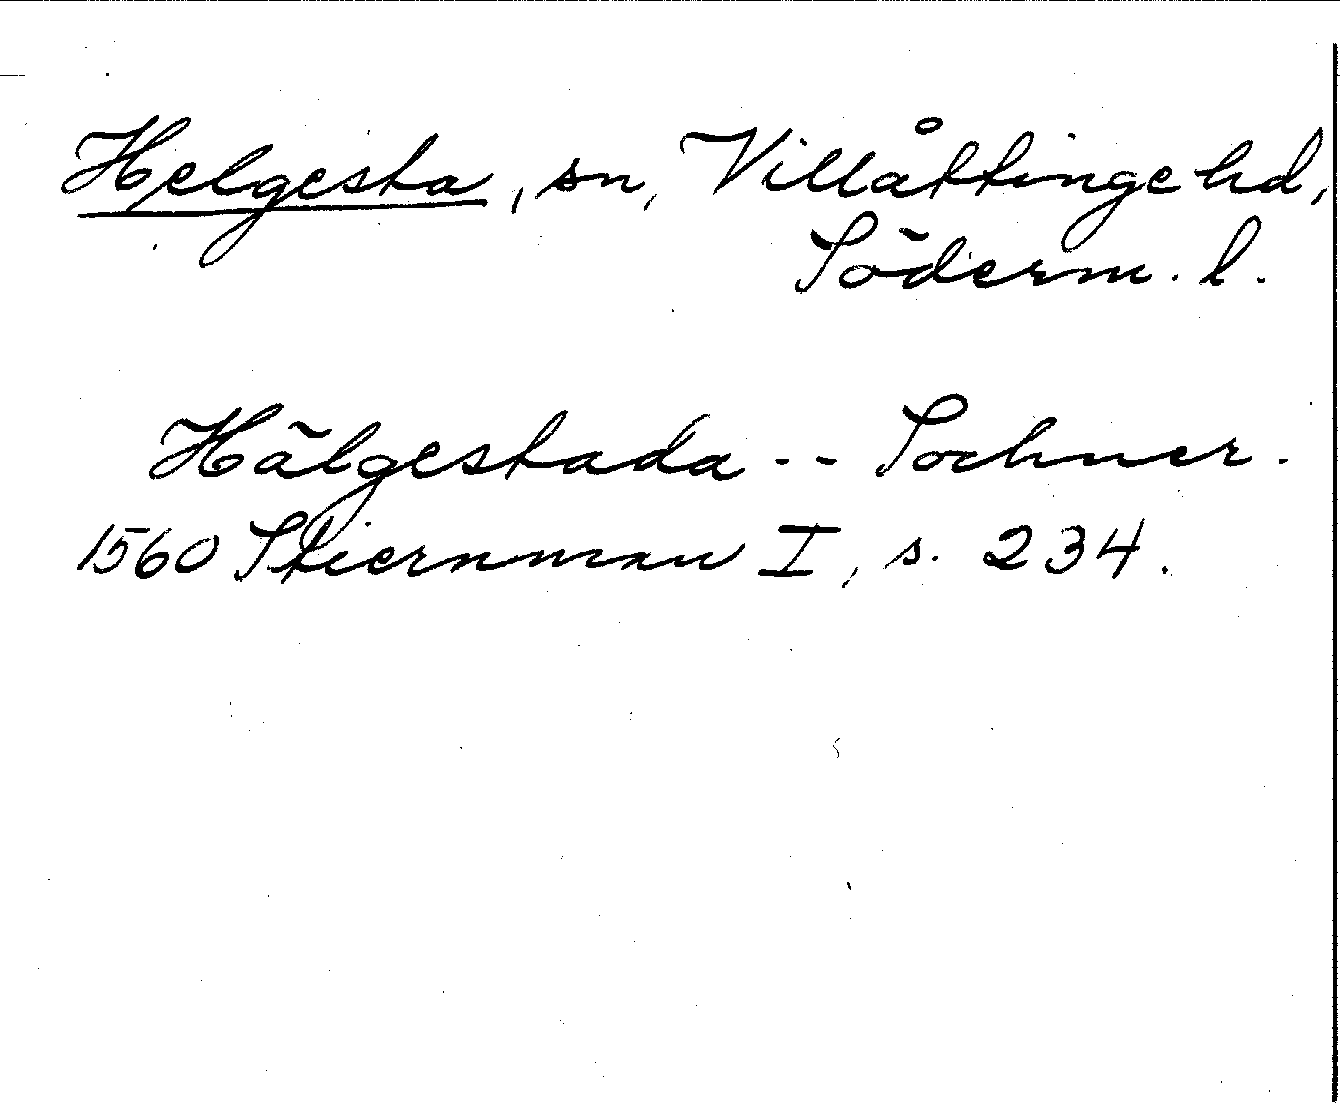 Helgesta, sn, Villåttinge hd,
Söderm. l.
Hälgestada -- Sochner.
1560 Stiernman I, s. 234.